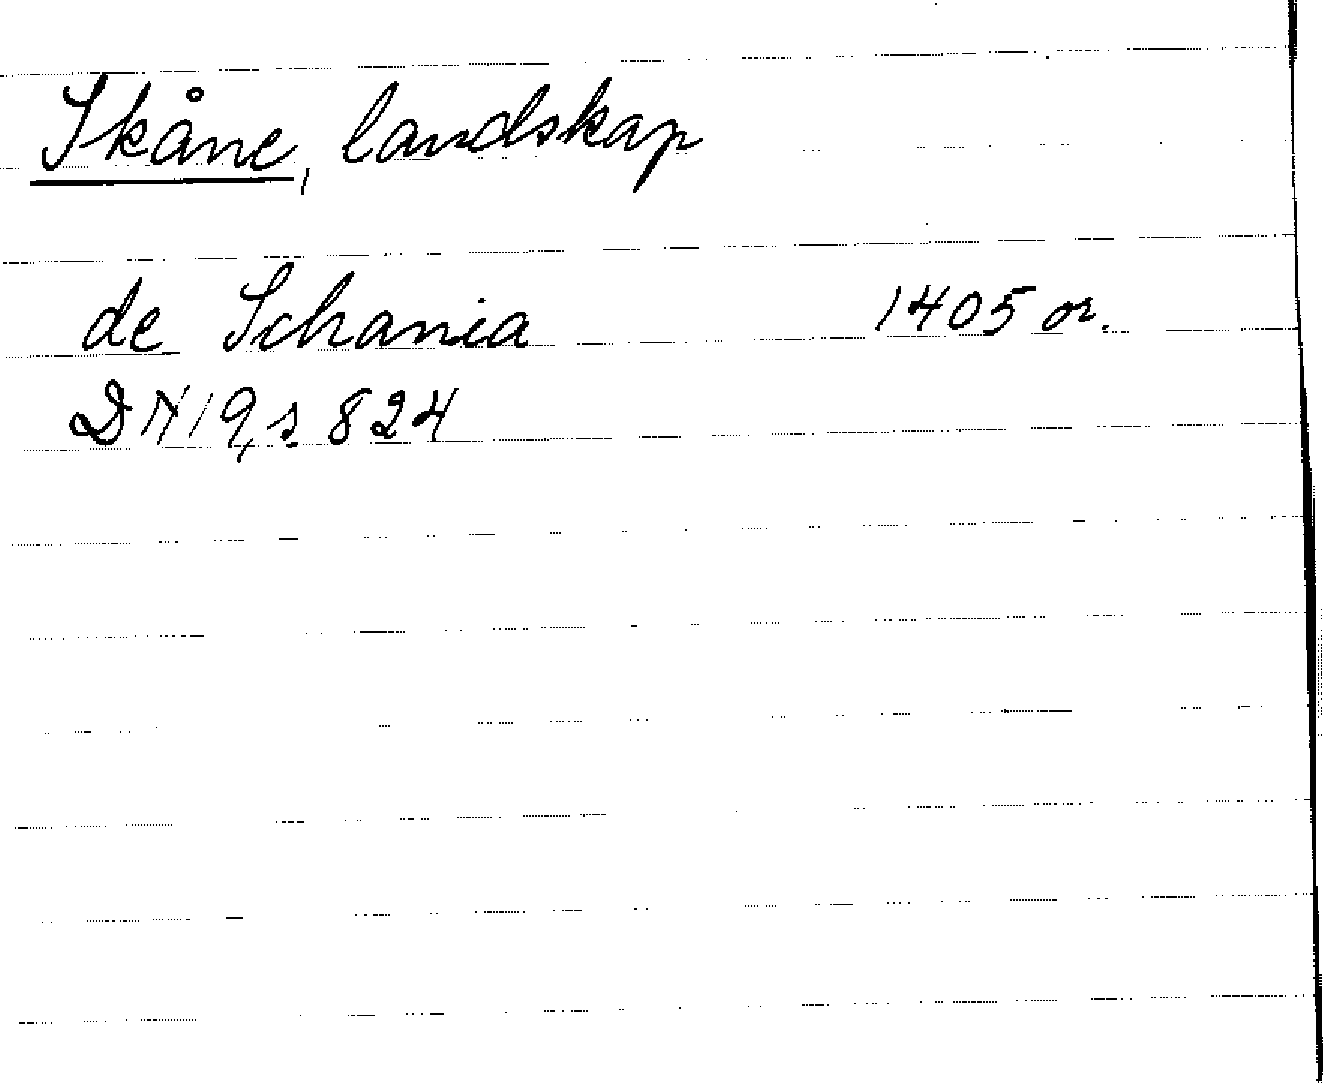 Skåne, landskap
de Schania 1405 or.
DN 19, s. 824